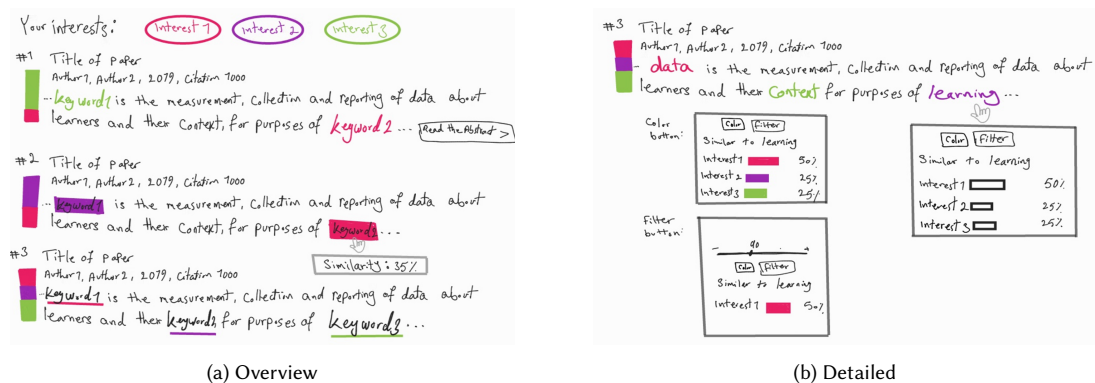 Your interests: Interest 1 Interest 2 Interest 3
#1 Title of Paper
Author1, Author2, 2079, Citation 1000
...keyword1 is the measurement, Collection and reporting of data about
learners and their Context, for purposes of keyword2 ... Read the Abstract >
#2 Title of Paper
Author1, Author2, 2079, Citation 1000
keyword1 is the measurement, Collection and reporting of data about
learners and their Context, for purposes of keyword2...
Similarity: 35%
#3 Title of Paper
Author1, Author2, 2079, Citation 1000
keyword1 is the measurement, Collection and reporting of data about
learners and their keyword2, for purposes of keyword3...
(a) Overview
#3 Title of Paper
Author1, Author2, 2079, Citation 1000
data is the measurement, Collection and reporting of data about
learners and their Context for purposes of learning...
Color button:
Color Filter
Similar to learning
Interest 1 50%
Interest 2 25%
Interest 3 25%
Filter button:
- 90 +
Color Filter
Similar to learning
Interest 1 50%
Color Filter
Similar to learning
Interest 1 50%
Interest 2 25%
Interest 3 25%
(b) Detailed